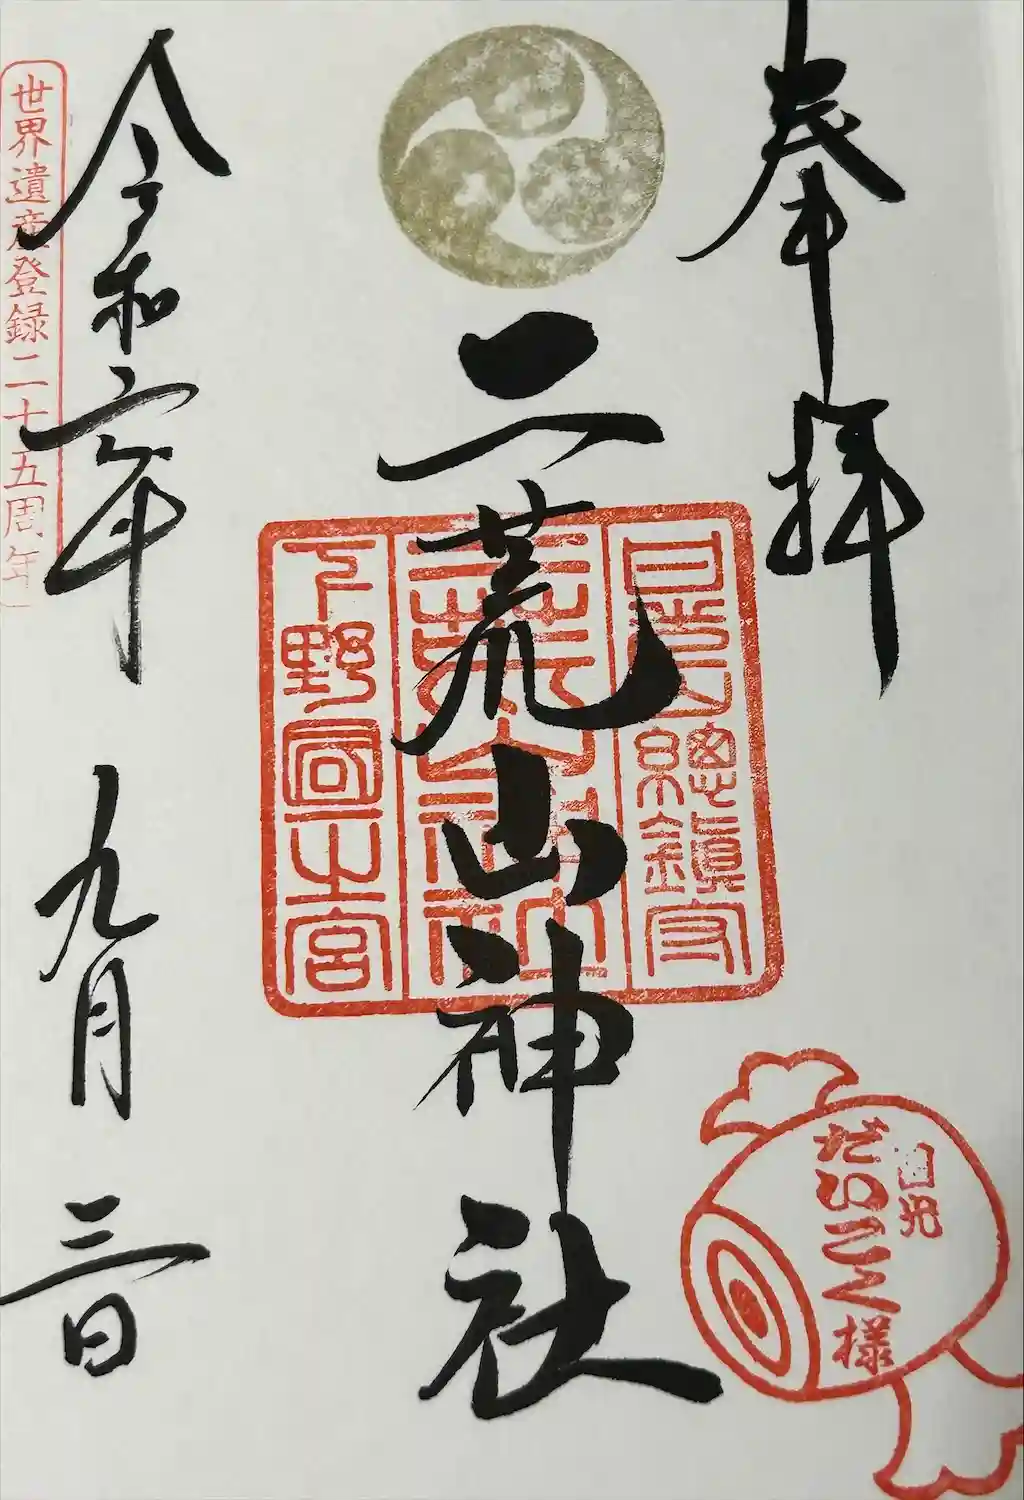 奉拝
日光山
總鎮守
二荒山神社
下野國一之宮
二荒山神社
日光
だいこく様
令和六年 九月 三日
世界遺産登録二十五周年